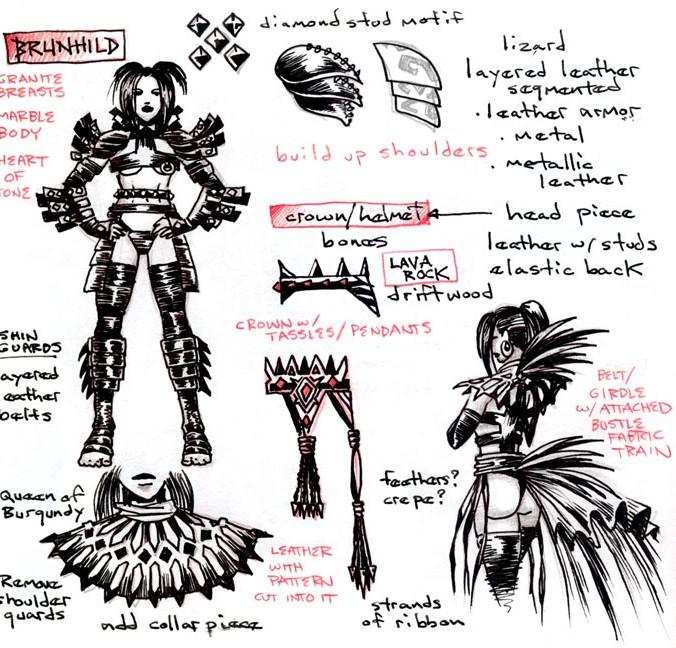 BRUNHILD
GRANITE
BREASTS
MARBLE
BODY
HEART
OF
STONE
diamond stud motif
build up shoulders
lizard
layered leather
segmented
. leather armor
. metal
. metallic
leather
crown/helmet
head piece
bones
leather w/ studs
elastic back
LAVA
ROCK
driftwood
CROWN W/
TASSLES/PENDANTS
SHIN
GUARDS
layered
leather
belts
BELT/
GIRDLE
W/ ATTACHED
BUSTLE
FABRIC
TRAIN
feathers?
crepe?
Queen of
Burgundy
Remove
shoulder
guards
add collar piece
LEATHER
WITH
PATTERN
CUT INTO IT
strands
of ribbon